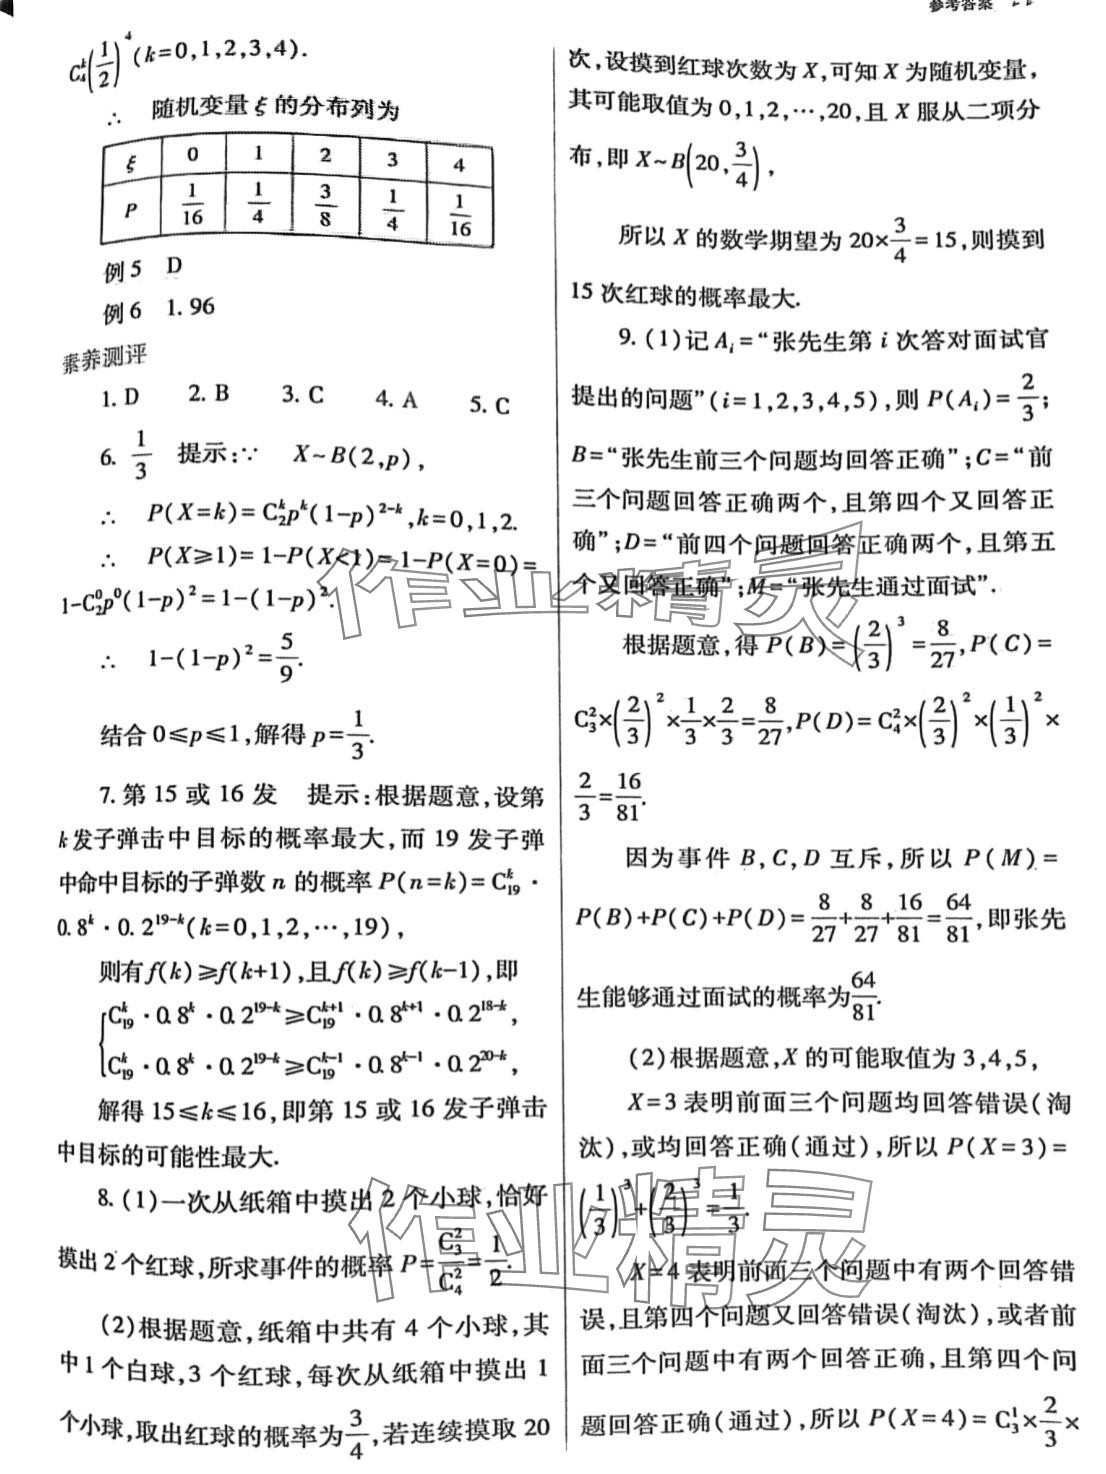 参考答案
C₄ᵏ(1/2)⁴(k=0,1,2,3,4).
∴ 随机变量 ξ 的分布列为
ξ 0 1 2 3 4
P 1/16 1/4 3/8 1/4 1/16
例 5 D
例 6 1.96
素养测评
1. D 2. B 3. C 4. A 5. C
6. 1/3 提示:∵ X~B(2,p),
∴ P(X=k)=C₂ᵏpᵏ(1-p)²⁻ᵏ,k=0,1,2.
∴ P(X≥1)=1-P(X<1)=1-P(X=0)=
1-C₂⁰p⁰(1-p)²=1-(1-p)².
∴ 1-(1-p)²=5/9.
结合 0≤p≤1,解得 p=1/3.
7. 第 15 或 16 发 提示:根据题意,设第
k 发子弹击中目标的概率最大,而 19 发子弹
中命中目标的子弹数 n 的概率 P(n=k)=C₁₉ᵏ·
0.8ᵏ·0.2¹⁹⁻ᵏ(k=0,1,2,…,19),
则有 f(k)≥f(k+1),且 f(k)≥f(k-1),即
C₁₉ᵏ·0.8ᵏ·0.2¹⁹⁻ᵏ≥C₁₉ᵏ⁺¹·0.8ᵏ⁺¹·0.2¹⁸⁻ᵏ,
C₁₉ᵏ·0.8ᵏ·0.2¹⁹⁻ᵏ≥C₁₉ᵏ⁻¹·0.8ᵏ⁻¹·0.2²⁰⁻ᵏ,
解得 15≤k≤16,即第 15 或 16 发子弹击
中目标的可能性最大.
8. (1)一次从纸箱中摸出 2 个小球,恰好
摸出 2 个红球,所求事件的概率 P=C₃²/C₄²=1/2.
(2)根据题意,纸箱中共有 4 个小球,其
中 1 个白球,3 个红球,每次从纸箱中摸出 1
个小球,取出红球的概率为3/4,若连续摸取 20
次,设摸到红球次数为 X,可知 X 为随机变量,
其可能取值为 0,1,2,…,20,且 X 服从二项分
布,即 X~B(20,3/4),
所以 X 的数学期望为 20×3/4=15,则摸到
15 次红球的概率最大.
9. (1)记 Aᵢ=“张先生第 i 次答对面试官
提出的问题”(i=1,2,3,4,5),则 P(Aᵢ)=2/3;
B=“张先生前三个问题均回答正确”;C=“前
三个问题回答正确两个,且第四个又回答正
确”;D=“前四个问题回答正确两个,且第五
个又回答正确”;M=“张先生通过面试”.
根据题意,得 P(B)=(2/3)³=8/27,P(C)=
C₃²×(2/3)²×1/3×2/3=8/27,P(D)=C₄²×(2/3)²×(1/3)²×
2/3=16/81.
因为事件 B,C,D 互斥,所以 P(M)=
P(B)+P(C)+P(D)=8/27+8/27+16/81=64/81,即张先
生能够通过面试的概率为64/81.
(2)根据题意,X 的可能取值为 3,4,5,
X=3 表明前面三个问题均回答错误(淘
汰),或均回答正确(通过),所以 P(X=3)=
(1/3)³+(2/3)³=1/3.
X=4 表明前面三个问题中有两个回答错
误,且第四个问题又回答错误(淘汰),或者前
面三个问题中有两个回答正确,且第四个问
题回答正确(通过),所以 P(X=4)=C₃¹×2/3×
作业精灵
作业精灵